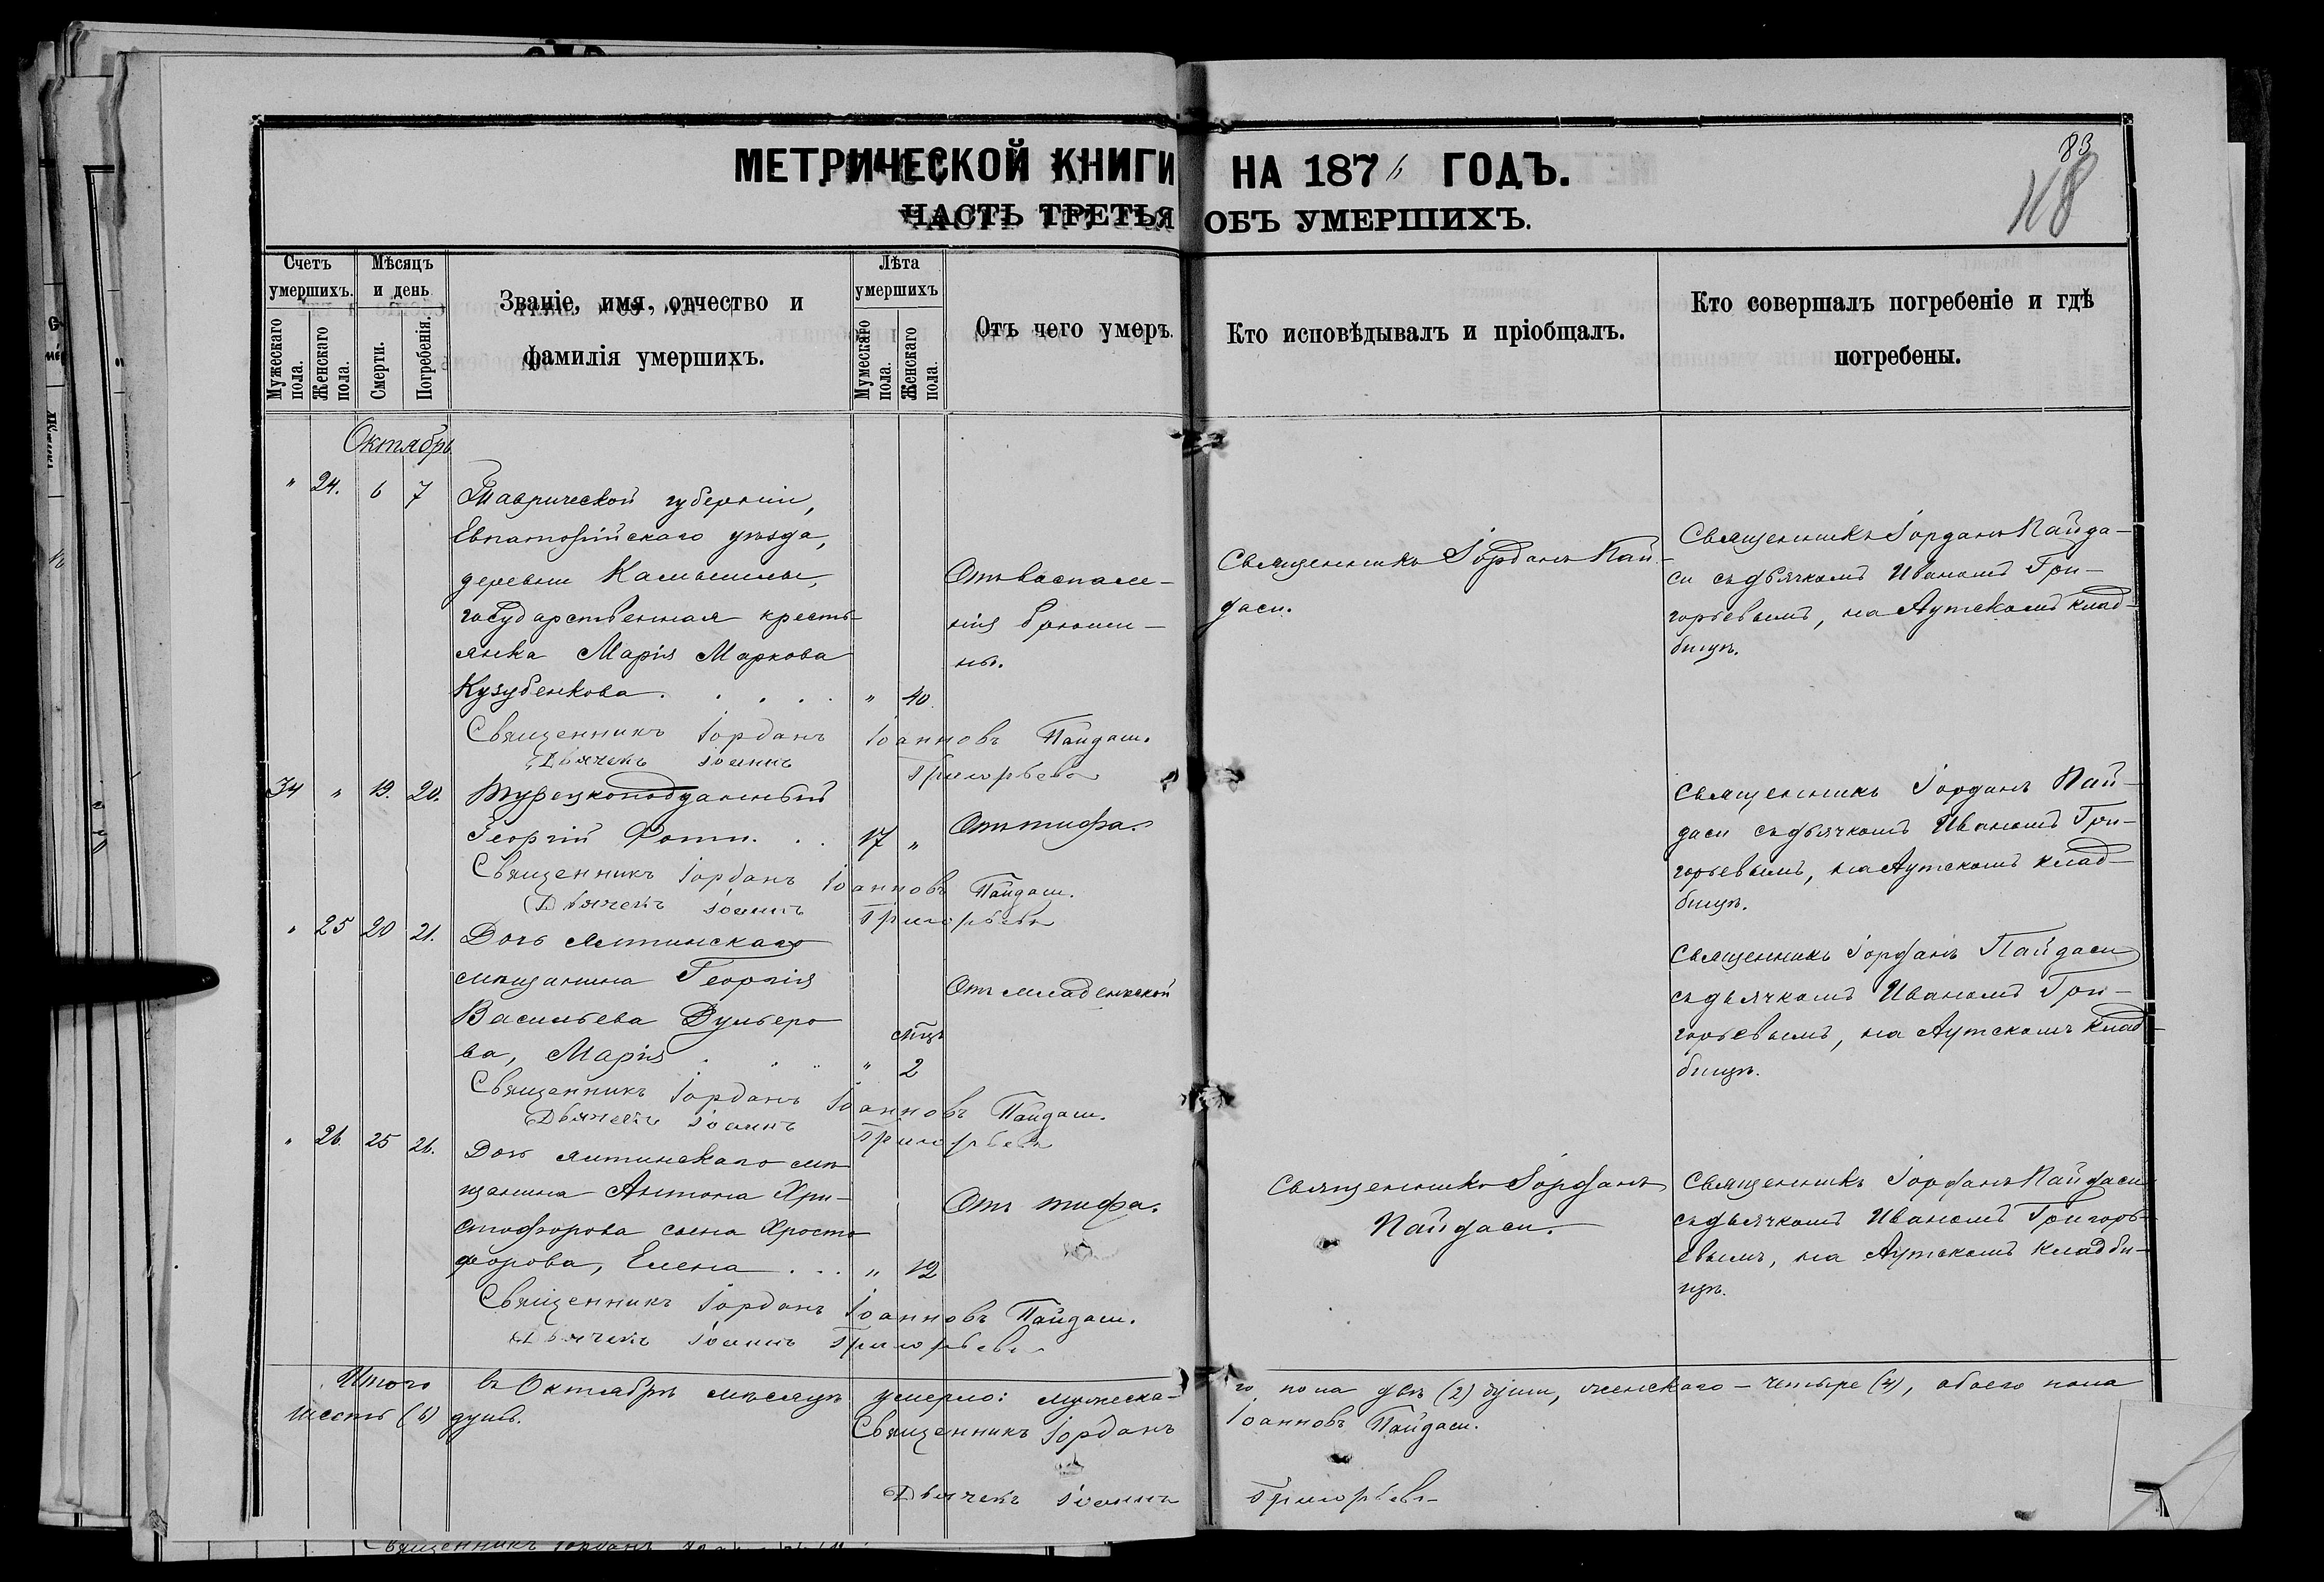 МЕТРИЧЕСКОЙ КНИГИ НА 1876 ГОДЪ.
ЧАСТЬ ТРЕТЬЯ ОБЪ УМЕРШИХЪ.
83
Счетъ умершихъ.
Мужескаго пола.
Женскаго пола.
Мѣсяцъ и день
Смерти.
Погребенія.
Званіе, имя, отчество и
фамилія умершихъ.
Лѣта умершихъ
Мужескаго пола.
Женскаго пола.
Отъ чего умеръ.
Кто исповѣдывалъ и пріобщалъ.
Кто совершалъ погребеніе и гдѣ
погребены.
Октябрь
" 24. 6 7 Таврической губерніи,
Евпаторійскаго уѣзда,
деревни
государственная кресть-
янка Марія Маркова
Кузубенкова . . . . . " 40.
Отъ воспале-
нія брюши-
ны.
Священникъ Іорданъ Пай-
даси.
Священникъ Іорданъ Пайда-
си съ дьячкомъ Иваномъ Гри-
горьевымъ, на Аутскомъ клад-
бищѣ.
Священникъ Іорданъ Іоанновъ Пайдаси.
Дьячекъ Іоаннъ Григорьевъ
34 " 19. 20. Турецкоподданный
Георгій Фоти. . . 17 "
Отъ тифа.
Священникъ Іорданъ Пай-
даси съ дьячкомъ Иваномъ Гри-
горьевымъ, на Аутскомъ клад-
бищѣ.
Священникъ Іорданъ Іоанновъ Пайдаси.
Дьячекъ Іоаннъ Григорьевъ
" 25 20 21. Дочь ялтинскаго
мѣщанина Георгія
Васильева Дульеро
ва, Марія . . . " мцъ 2
Отъ младенческой
Священникъ Іорданъ Пайдаси
съ дьячкомъ Иваномъ Гри-
горьевымъ, на Аутскомъ клад-
бищѣ.
Священникъ Іорданъ Іоанновъ Пайдаси.
Дьячекъ Іоаннъ Григорьевъ
" 26. 25 26. Дочь ялтинскаго мѣ
щанина Антона Хри-
стофорова сына Христо
форова, Елена . . . " 12
Отъ тифа.
Священникъ Іорданъ
Пайдаси.
Священникъ Іорданъ Пайдаси
съ дьячкомъ Иваномъ Григорь-
евымъ, на Аутскомъ кладби-
щѣ.
Священникъ Іорданъ Іоанновъ Пайдаси.
Дьячекъ Іоаннъ Григорьевъ
Итого въ Октябрѣ мѣсяцѣ умерло: мужеска-го пола двѣ (2) души, женскаго - четыре (4), обоего пола
шесть (6) душъ.
Священникъ Іорданъ Іоанновъ Пайдаси.
Дьячекъ Іоаннъ Григорьевъ